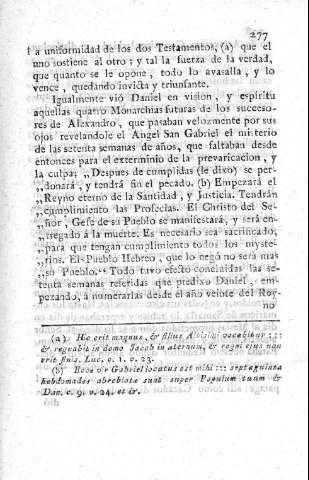 277
la uniformidad de los dos Testamentos, (a) que el
uno sostiene al otro; y tal la fuerza de la verdad,
que quanto se le opone, todo lo avasalla, y lo
vence, quedando invicta y triunfante.
Igualmente vió Daniel en vision, y espiritu
aquellas quatro Monarchias futuras de los succeso-
res de Alexandro, que pasaban velozmente por sus
ojos revelandole el Angel San Gabriel el misterio
de las setenta semanas de años, que faltaban desde
entonces para el exterminio de la prevaricacion, y
la culpa: „Despues de cumplidas (le dixo) se per-
„donará, y tendrá fin el pecado. (b) Empezará el
„Reyno eterno de la Santidad, y Justicia. Tendrán
„cumplimiento las Profecias. El Christo del Se-
„ñor, Gefe de su Pueblo se manifestará, y será en-
„tregado á la muerte. Es necesario sea sacrificado,
„para que tengan cumplimiento todos los myste-
„rios. El Pueblo Hebreo, que lo negó no será mas
„su Pueblo." Todo tuvo efecto concluidas las se-
tenta semanas referidas que predixo Daniel, em-
pezando, á numerarlas desde el año veinte del Rey-
no
(a) Hic erit magnus, & filius Altisimi vocabitur :::
& regnabit in domo Jacob in aternum, & regni ejus non
erit finis. Luc. c. 1. v. 23.
(b) Ecce vir Gabriel locutus est mihi ::: septaguinta
hebdomades abreviatæ sunt super Populum tuum &
Dan. c. 9. v. 24. et &.